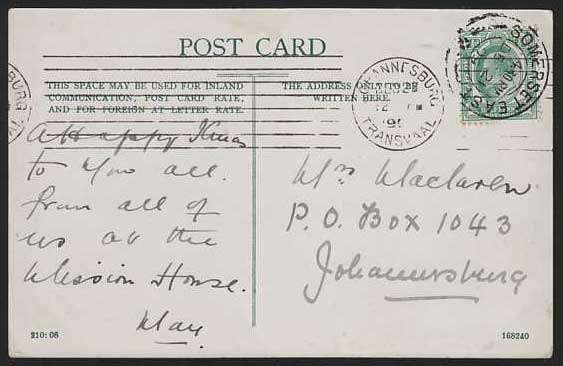 POST CARD
THIS SPACE MAY BE USED FOR INLAND
COMMUNICATION, POST CARD RATE,
AND FOR FOREIGN AT LETTER RATE.
THE ADDRESS ONLY TO BE
WRITTEN HERE.
JOHANNESBURG
TRANSVAAL
SOMERSET EAST
A Happy Xmas
to you all.
from all of
us at the
Mission House.
May.
Mrs Maclaren
P.O. Box 1043
Johannesburg
210:08
168240